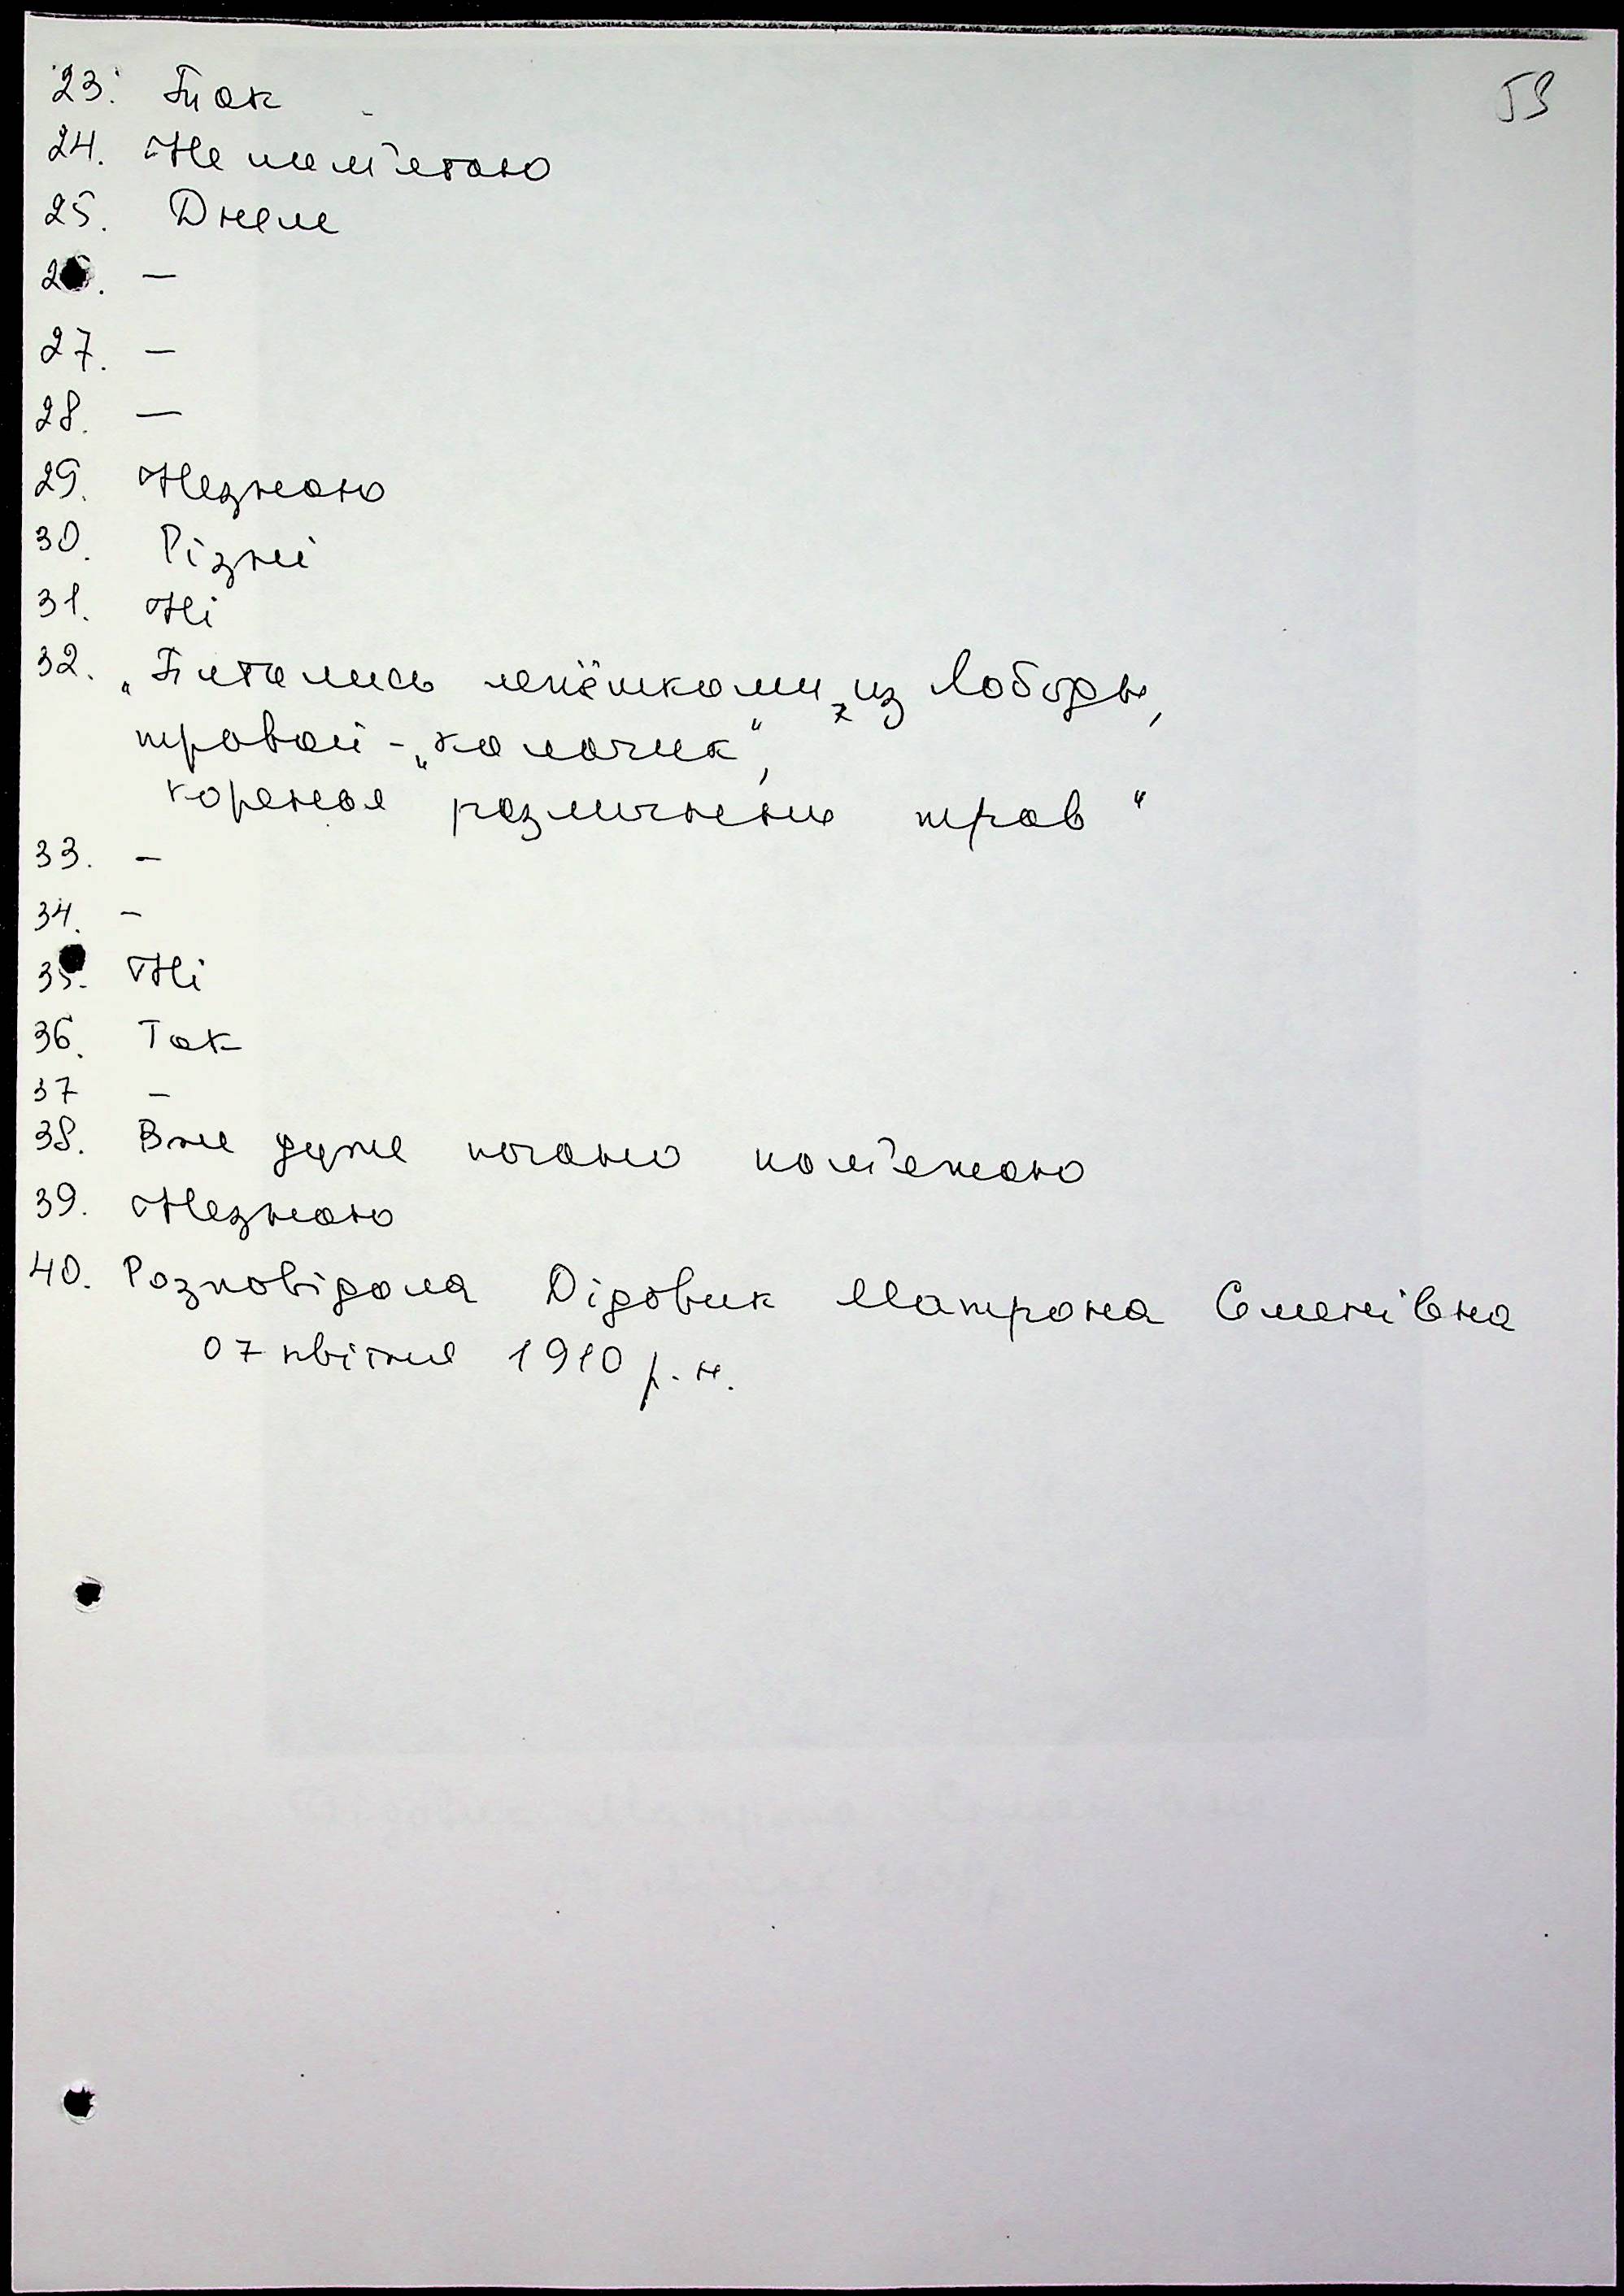 53
23. Так
24. Не пам'ятаю
25. Днем
26. —
27. —
28. —
29. Незнаю
30. Різні
31. Ні
32. „Питались лепёшками из лободы,
травой - „калачик“,
коренья различных трав“
33. -
34. -
35. Ні
36. Так
37 -
38. Вже дуже погано пам'ятаю
39. Незнаю
40. Розповідала Дідовик Матрона Семенівна
07 квітня 1910 р.н.